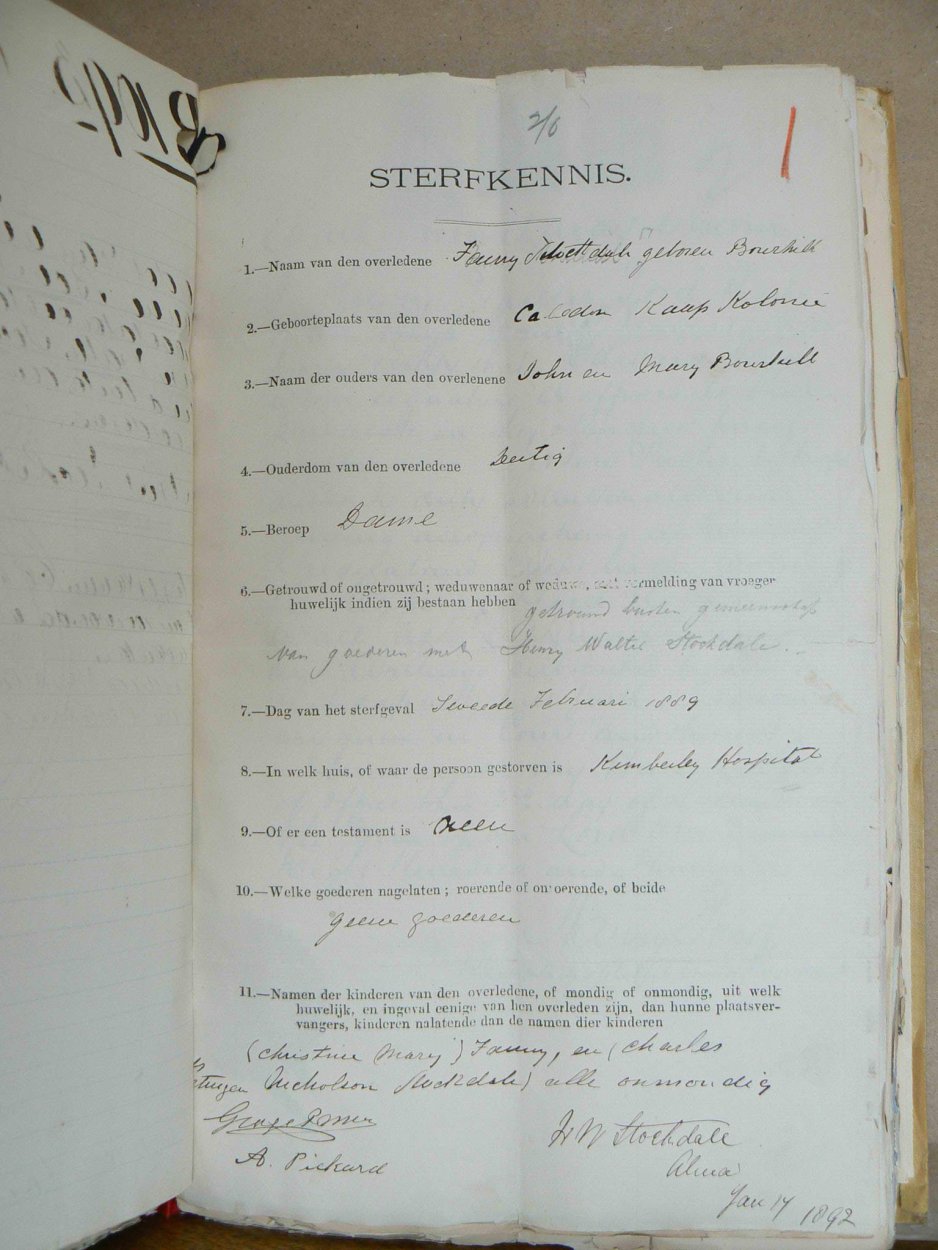 2/0
STERFKENNIS.
1.—Naam van den overledene Fanny Stockdale geboren Bourhill
2.—Geboorteplaats van den overledene Caledon Kaap Kolonie
3.—Naam der ouders van den overlenene John en Mary Bourhill
4.—Ouderdom van den overledene Dertig
5.—Beroep Dame
6.—Getrouwd of ongetrouwd; weduwenaar of weduwe, met vermelding van vroeger
huwelijk indien zij bestaan hebben getrouwd buiten gemeenschap
van goederen met Henry Walter Stockdale.
7.—Dag van het sterfgeval Tweede Februari 1889
8.—In welk huis, of waar de persoon gestorven is Kimberley Hospital
9.—Of er een testament is Neen
10.—Welke goederen nagelaten; roerende of onroerende, of beide
geene goederen
11.—Namen der kinderen van den overledene, of mondig of onmondig, uit welk
huwelijk, en ingeval eenige van hen overleden zijn, dan hunne plaatsver-
vangers, kinderen nalatende dan de namen dier kinderen
(Christine Mary) Fanny, en (Charles
Nicholson Stockdale) alle onmondig
H W Stockdale
A. Pickard
Alma
Jan 14 1892